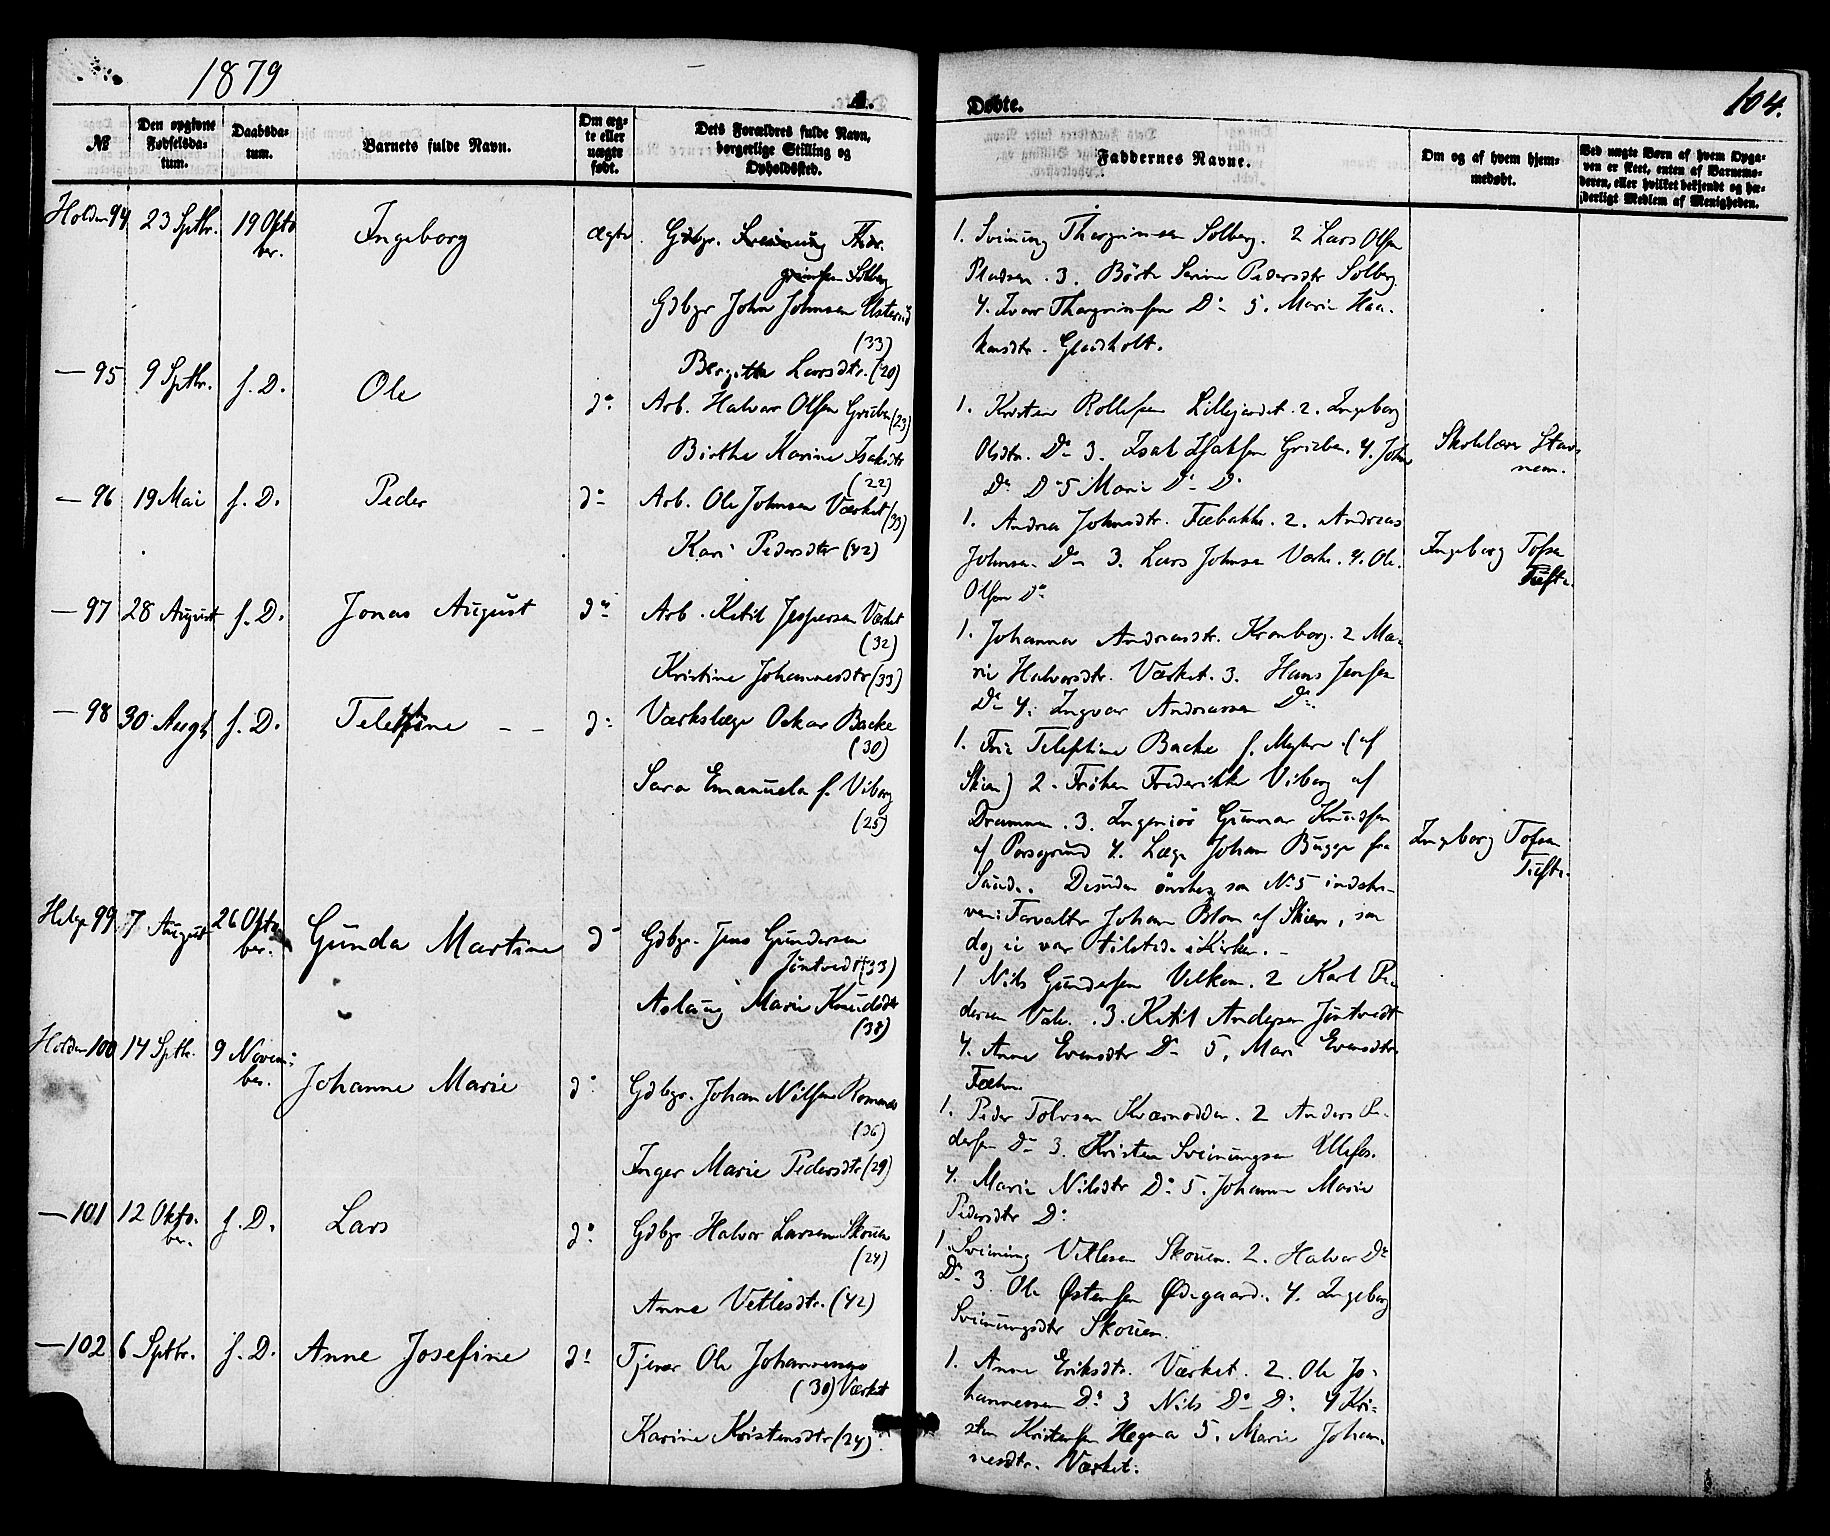 1879
104.
Døbte.
№
Den opgivne Fødselsdatum.
Daabsdatum.
Barnets fulde Navn.
Om ægte eller uægte født.
Dets Forældres fulde Navn, borgerlige Stilling og Opholdssted.
Faddernes Navne.
Om og af hvem hjemmedøbt.
Ved uægte Børn af hvem Opgaven er skeet, enten af Barnemoderen, eller hvilket bekjendt og hæderligt Medlem af Menigheden.
Holden 94 23 Sptbr. 19 Okto
ber.
Ingeborg
ægte
Gdbr. Sveinung Thor
grimsen Solberg
Gdbgr John Johnsen
(33)
Bergitte Larsdtr. (20)
1. Sveinung Thorgrimsen Solberg. 2 Lars Olsen
Pladsen. 3. Børte Serine Pedersdtr Solberg
4. Ivar Thorgrimsen Do 5. Marie Haa-
konsdtr. Gladholt.
— 95 9 Sptbr. f. D. Ole do
Arb. Halvor Olsen Gruben (23)
Birthe Karine Isaksdtr
(22)
1. Kristen Rollefsen Lillejordet. 2. Ingeborg
Olsdtr. Do 3. Isak Isaksen Gruben. 4. John
Do Do 5 Marie Do Do
Skolelærer Stav
nem.
— 96 19 Mai f. D. Peder do
Arb. Ole Johnsen Værket (33)
Kari Pedersdtr (42)
1. Andrea Johnsdtr. Fæbakke. 2. Andreas
Johnsen Do 3. Lars Johnsen Værk. 4. Ole
Olsen Do
Ingeborg Tofsen
Tufte.
— 97 28 August f. D. Jonas August do
Arb. Ketil Jespersen Værket
(32)
Kristine Johannesdtr (33)
1. Johanna Andreasdtr. Kronborg. 2 Ma-
rie Halvorsdtr. Værket. 3. Hans Jensen
Do 4. Ingvar Andreassen Do.
— 98 30 Augt f. D. Telefine - - do
Værkslæge Oskar Backe
(30)
Sara Emanuela f. Viborg
(25)
1. Fru Telephine Backe f. Myhre (af
Skien) 2. Frøken Frederikke Viborg af
Drammen. 3. Ingeniør Gunnar Knudsen
af Porsgrund 4. Læge Johan Bugge fra
Sand. Desuden ønskes som No 5 indskre-
ven: Forvalter Johan Blom af Skien, som
dog ei var tilstede i Kirken. -
Ingeborg Tofsen
Tufte.
Helge 99 7 August 26 Okto
ber.
Gunda Martine do
Gdbgr. Jens Gundersen
Jøntvedt (33)
Aslaug Marie Knudsdtr
(38)
1 Nils Gundersen Velkom. 2 Karl Pe-
dersen Vale. 3. Ketil Andersen Jøntvedt
4. Anne Evensdtr Do 5. Mari Evensdtr
Holden 100 14 Sptbr. 9 Novem-
ber.
Johanne Marie do
Gdbgr. Johan Nilsen Romenæs
(36)
Inger Marie Pedersdtr (29)
1. Peder Tolvsen Kværnodden. 2 Anders Pe-
dersen Do 3. Kristen Sveinungsen Ulefos.
4. Marie Nilsdtr Do 5. Johanne Marie
Pedersdtr Do
— 101 12 Okto.
ber.
f. D. Lars do
Gdbgr. Halvor Larsen Skouen
(24)
Anne Vetlesdtr. (42)
1. Sveinung Vetlesen Skouen. 2. Halvor Do
Do 3 Ole Østensen Ødegaard. 4. Ingeborg
Sveinungsdtr Skouen.
— 102 6 Sptbr. f. D. Anne Josefine do
Tjener Ole Johannesen
(30) Værket
Karine Kristensdtr (24)
1. Anne Eriksdtr. Værket. 2. Ole Jo-
hannessen Do 3 Nils Do Do. 4 Kri-
sten Kristensen Hegna 5. Marie Johan-
nesdtr. Værket.